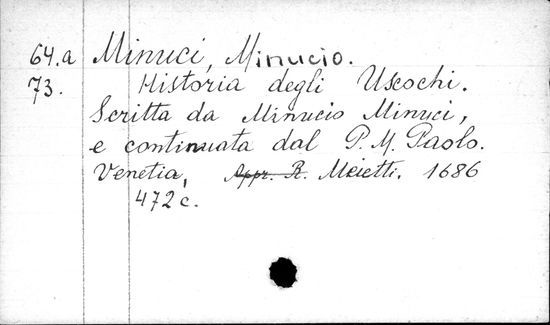 64.a Minuci, Minucio.
73. Historia degli Uscochi.
Scritta da Minucio Minuci,
e continuata dal P. M. Paolo.
Venetia, Appr. R. Meietti. 1686
472 c.